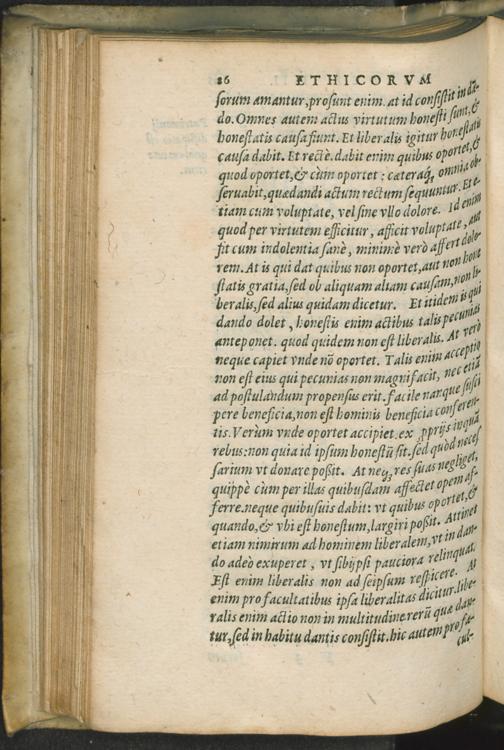 86 ETHICORVM
ſorum amantur, proſunt enim. at id conſiſtit in dā-
do. Omnes autem actus virtutum honeſti ſunt, &
honeſtatis cauſa fiunt. Et liberalis igitur honeſtatis
cauſa dabit. Et rectè. dabit enim quibus oportet, &
quod oportet, & cùm oportet : cæteraq; omnia ob-
ſeruabit, quæ dandi actum rectum ſequuntur. Et e-
tiam cum voluptate, vel ſine vllo dolore. Id enim
quod per virtutem efficitur, afficit voluptate, aut
fit cum indolentia ſanè, minimè verò affert dolo-
rem. At is qui dat quibus non oportet, aut non hone
ſtatis gratia, ſed ob aliquam aliam cauſam, non li-
beralis, ſed alius quidam dicetur. Et itidem is qui
dando dolet, honeſtis enim actibus talis pecunias
anteponet. quod quidem non eſt liberalis. At verò
neque capiet vnde nō oportet. Talis enim acceptio
non eſt eius qui pecunias non magnifacit, nec etiā
ad poſtulandum propenſus erit. facile nanque ſuſci
pere beneficia, non eſt hominis beneficia conferen-
tis. Verùm vnde oportet accipiet. ex ꝓprijs inquā
rebus: non quia id ipſum honeſtū ſit. ſed quòd neceſ
ſarium vt donare poßit. At neq; res ſuas negliget,
quippè cùm per illas quibuſdam affectet opem af-
ferre. neque quibuſuis dabit: vt quibus oportet, &
quando, & vbi eſt honeſtum, largiri poßit. Attinet
etiam nimirum ad hominem liberalem, vt in dan-
do adeò exuperet, vt ſibijpſi pauciora relinquat.
Eſt enim liberalis non ad ſeipſum reſpicere. At
enim pro facultatibus ipſa liberalitas dicitur. libe-
ralis enim actio non in multitudine rerū quæ dan-
tur, ſed in habitu dantis conſiſtit. hic autem pro fa-
cul-